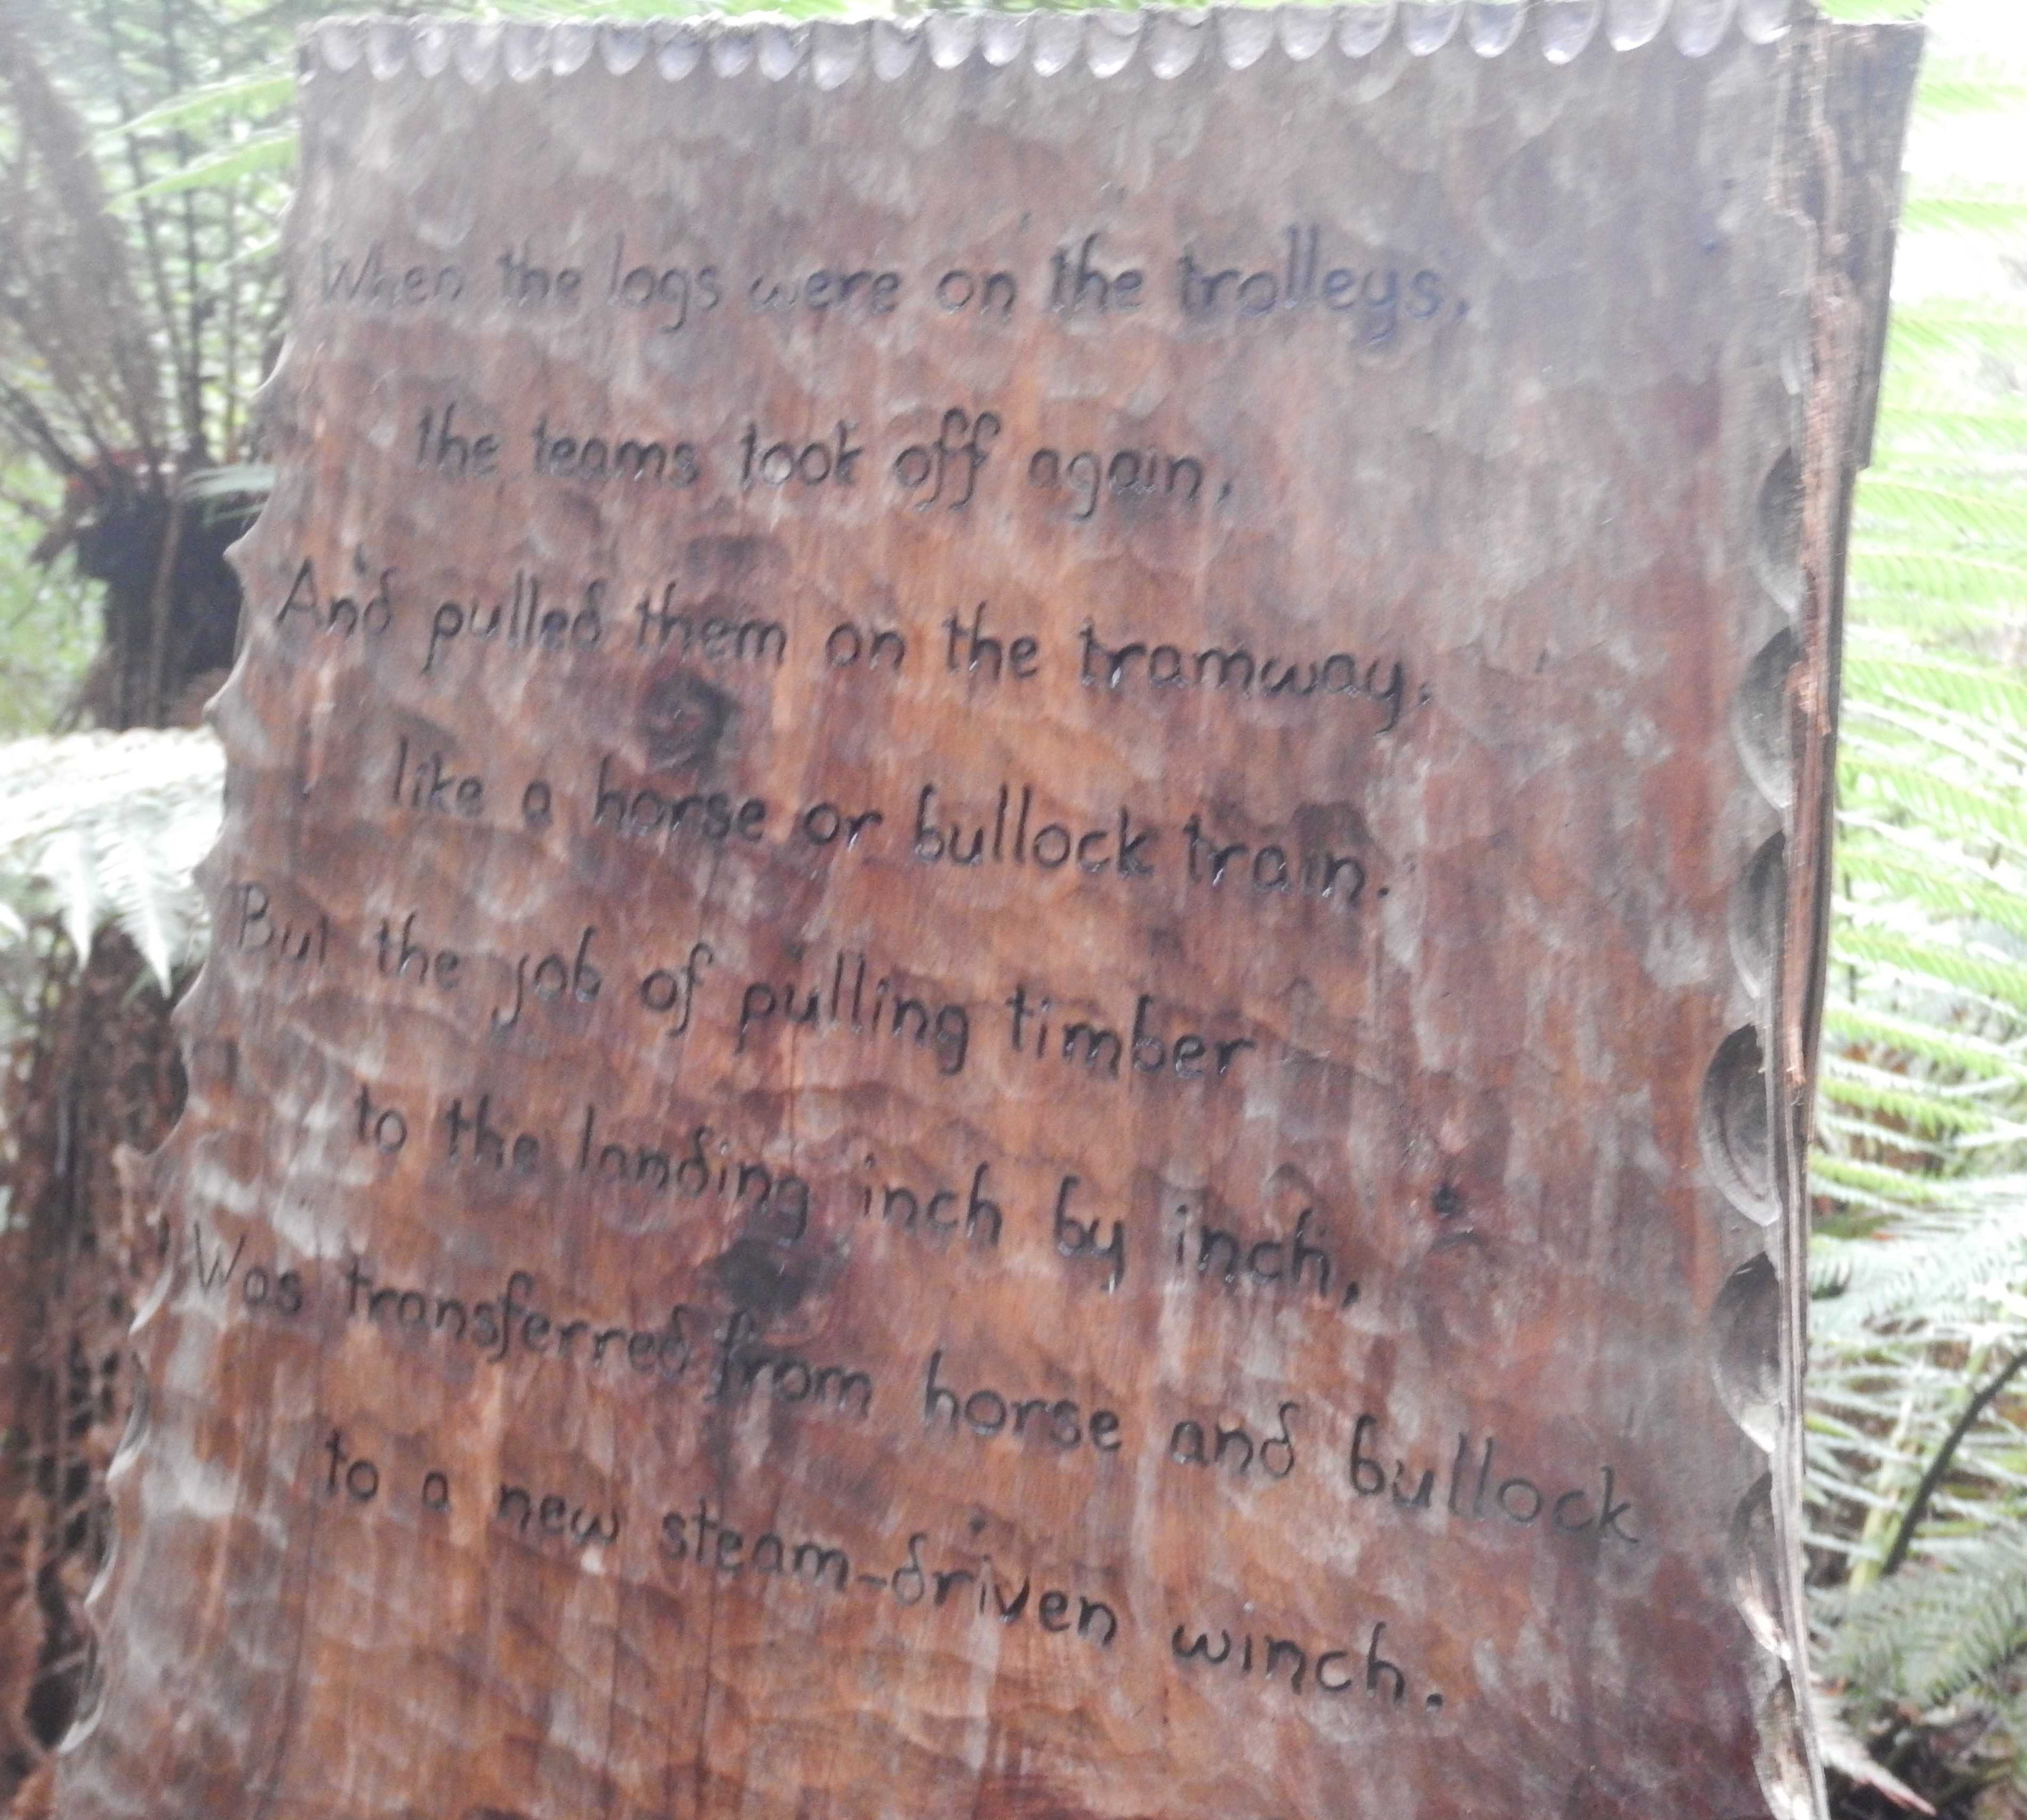 When the logs were on the trolleys,
the teams took off again,
And pulled them on the tramway,
like a horse or bullock train.
But the job of pulling timber
to the landing inch by inch,
Was transferred from horse and bullock
to a new steam-driven winch.